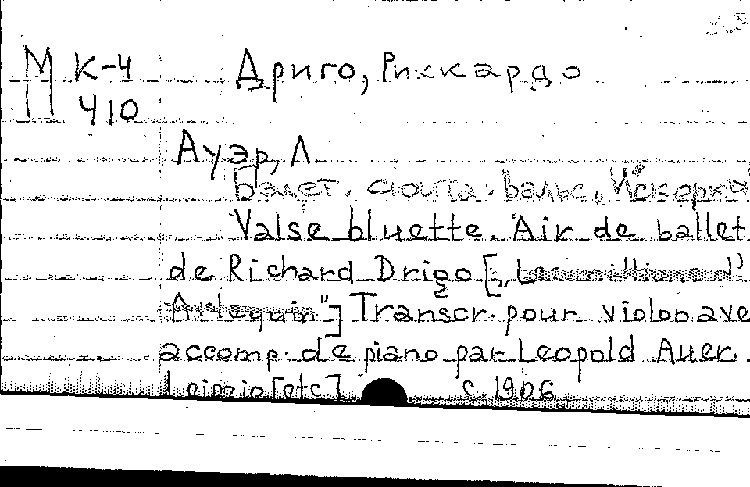 М К-4 Дриго, Риккардо
П 410
Ауэр, Л
Балет. сюита. Вальс „Искорки
Valse bluette. Air de ballet
de Richard Drigo [„Les millions d'
Arlequin"] Transcr. pour violon ave
accomp. de piano par Leopold Auer.
Leipzig [etc] c. 1906